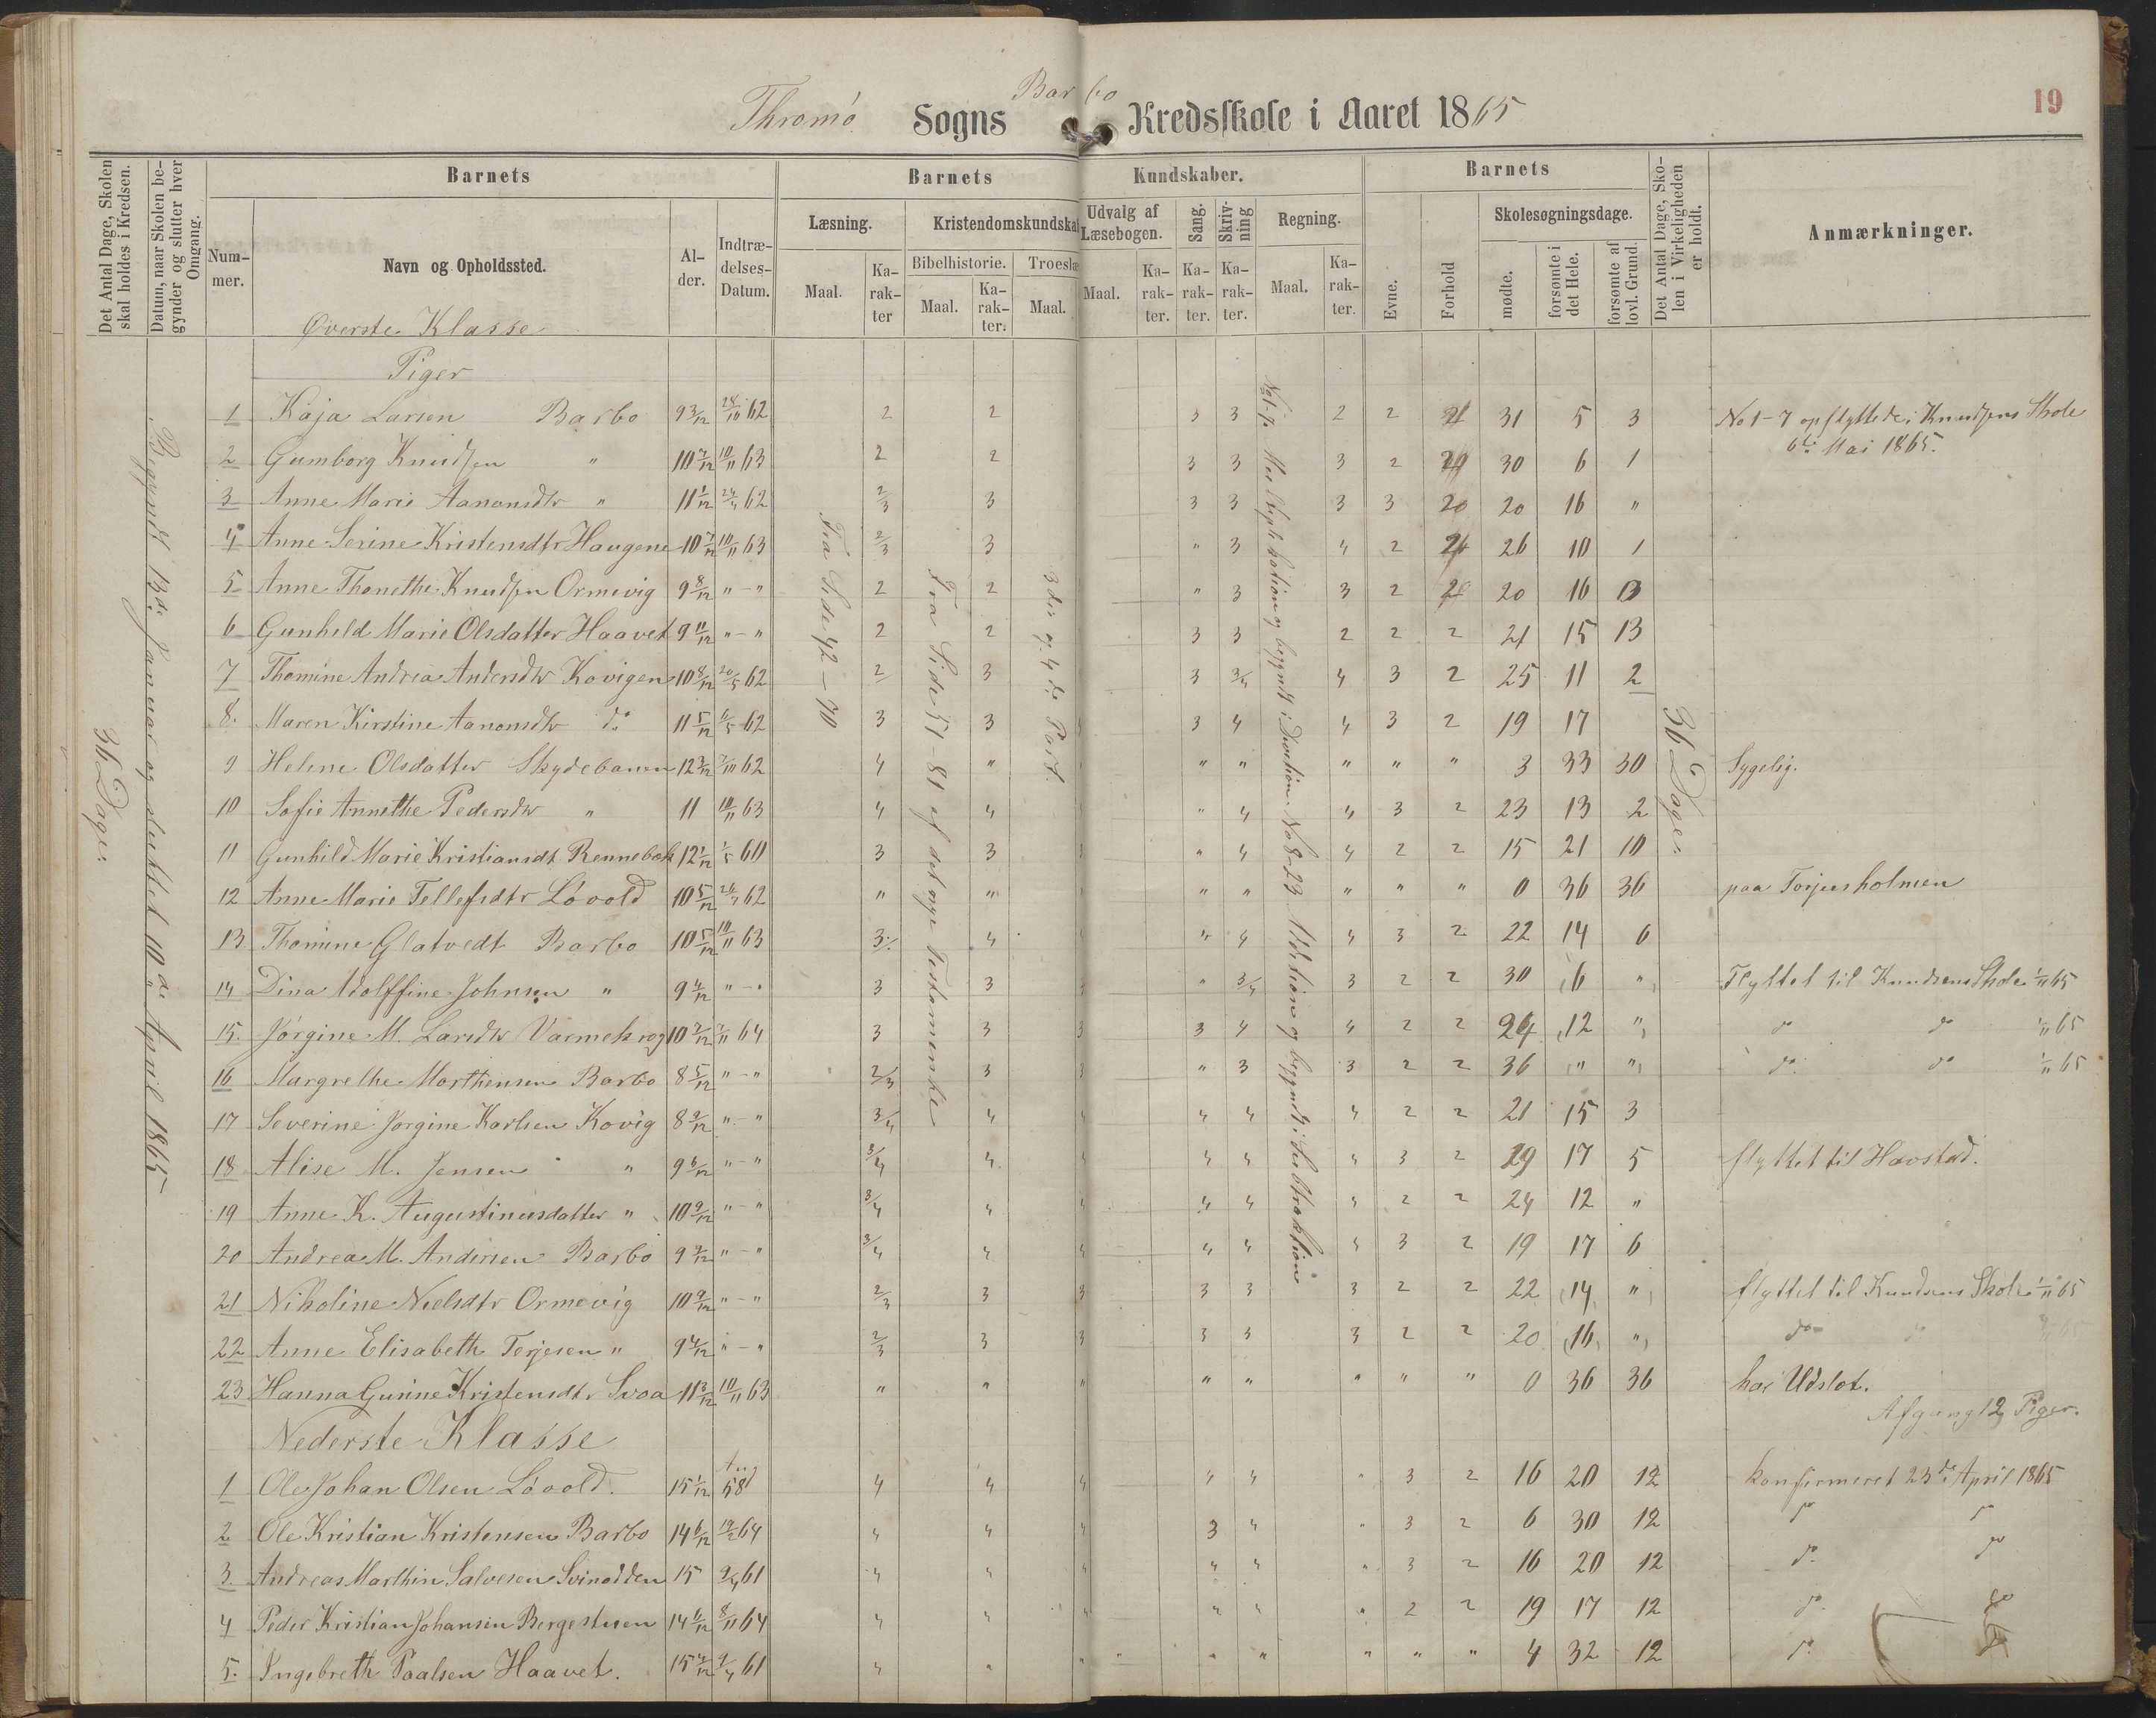 19
Thromö Sogns Barbo Kredsskole i Aaret 1865
Det Antal Dage, Skolen skal holdes i Kredsen.
Datum, naar Skolen begynder og slutter hver Omgang.
Barnets
Barnets Kundskaber.
Barnets
Det Antal Dage, Skolen i Virkeligheden er holdt.
Anmærkninger.
Nummer.
Navn og Opholdssted.
Alder.
Indtrædelses-Datum.
Læsning.
Kristendomskundskab
Udvalg af Læsebogen.
Sang.
Skrivning
Regning.
Evne.
Forhold
Skolesøgningsdage.
Bibelhistorie.
Troeslæ
Maal.
Karakter
Maal.
Karakter.
Maal.
Maal.
Karakter.
Karakter.
Karakter.
Maal.
Karakter.
mødte.
forsømte i det Hele.
forsømte af lovl. Grund.
36 Dage.
Begyndt 13de Januar og sluttet 10de April 1865
Fra Side 42-70
Fra Side 51-81 af det nye Testamente
3die og 4de Part.
No 1-7 Multiplikation og begyndt i Division. No 8-23 Addition og begyndt i Subtraktion
36 Dage.
Øverste Klasse
Piger
1 Kaja Larsen Barbo 9 3/12 28/10 62 2 2 3 3 2 2 2 31 5 3 No 1-7 opflyttede i Knudsens Skole
6te Mai 1865.
2 Gumborg Knudsen " 10 7/12 10/11 63 2 2 3 3 3 2 2 30 6 1
3 Anne Marie Aanonsdtr " 11 1/12 24/4 62 2/3 3 3 3 3 3 20 20 16 "
4 Anne Serine Kristensdtr Haugene 10 7/12 10/11 63 2/3 3 " 3 4 2 2 26 10 1
5 Anne Thonethe Knudsen Ormevig 9 8/12 "-" 2 2 " 3 3 2 2 20 16 13
6 Gunhild Marie Olsdatter Haavet 9 11/12 "-" 2 2 3 3 2 2 2 21 15 13
7 Thomine Andrea Andersdtr Kovigen 10 8/12 20/5 62 2 3 3 3/4 4 3 2 25 11 2
8. Maren Kirstine Aanonsdtr do 11 5/12 6/5 62 3 3 3 4 4 3 2 19 17
9 Helene Olsdatter Skydebanen 12 3/12 7/10 62 4 " " " " " " 3 33 30 Sygelig.
10 Sofie Annethe Pedersdtr " 11 10/11 63 4 4 " 4 4 3 2 23 13 2
11 Gunhild Marie Kristiansdt Rennebæk 12 1/12 1/5 60 3 3 " 4 4 2 2 15 21 10
12 Anne Marie Tellefsdtr Lövold 10 5/12 24/4 62 " " " " " " " 0 36 36 paa Torjusholmen
13 Thomine Glatvedt Barbo 10 5/12 10/11 63 3 4 " 4 4 3 2 22 14 6
14 Dina Adolffine Johnsen " 9 4/12 "-" 3 3 " 3/4 3 2 2 30 6 " Flyttet til Knudsens Skole 1/11 65
15. Jørgine M. Larsdtr Varmekrog 10 2/12 7/11 64 3 3 3 3 4 4 2 2 24 12 " do do 1/11 65
16 Margrethe Morthensen Barbo 8 5/12 "-" 2/3 3 3 " 3 3 2 2 36 " " do do 1/11 65
17 Severine Jorgine Karlsen Kovig 8 9/12 "-" 3/4 4 4 4 4 2 2 21 15 3
18 Alise M. Jensen " 9 6/12 "-" 3/4 4 4 4 4 3 2 29 17 5 flyttet til Havstad.
19 Anne K. Augustinusdatter " 10 9/12 "-" 3/4 4 4 4 4 2 2 24 12 "
20 Andrea M. Andersen Barbo 9 2/12 "-" 3/4 4 4 4 4 3 2 19 17 6
21 Nikoline Nielsdtr Ormevig 10 9/12 "-" 2/3 3 3 3 3 3 2 2 22 14 " flyttet til Knudsens Skole 1/11 65
22 Anne Elisabeth Terjesen " 9 4/12 "-" 2/3 3 3 3 3 3 2 2 20 16 " do do
23 Hanna Gurine Kristensdtr Svoa 11 3/12 10/11 63 " " " " " " " " 0 36 36 har Udslæt.
Afgang 12 Piger.
Nederste Klasse
1 Ole Johan Olsen Lövold. 15 1/12 Aug 58 4 4 4 4 4 " 3 2 16 20 12 konfirmeret 23de April 1865
2 Ole Kristian Kristensen Barbo 14 6/12 19/2 64 4 4 4 3 4 " 3 2 6 30 12 do do
3. Andreas Marthin Salvesen Svinodden 15 9/4 61 4 4 4 4 " 3 2 16 20 12 do do
4 Peder Kristian Johansen Bergestuen 14 6/12 8/11 64 4 4 4 4 4 " 2 2 19 17 12 do do
5. Ingebreth Paalsen Haavet. 15 4/12 9/4 61 4 " " " " " " " " 4 32 12 do